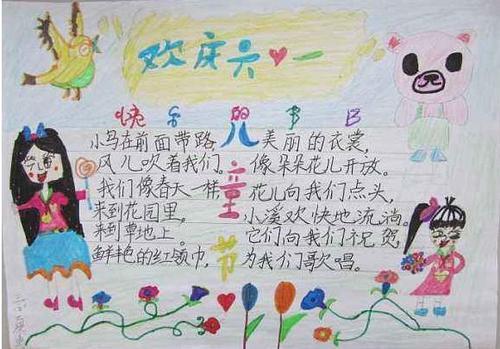 欢庆六一
快乐的节日
小鸟在前面带路
风儿吹着我们。
我们像春天一样
来到花园里。
来到草地上。
鲜艳的红领巾,
儿童节
美丽的衣裳,
像朵朵花儿开放。
花儿向我们点头,
小溪欢快地流淌。
它们向我们祝贺,
为我们歌唱。